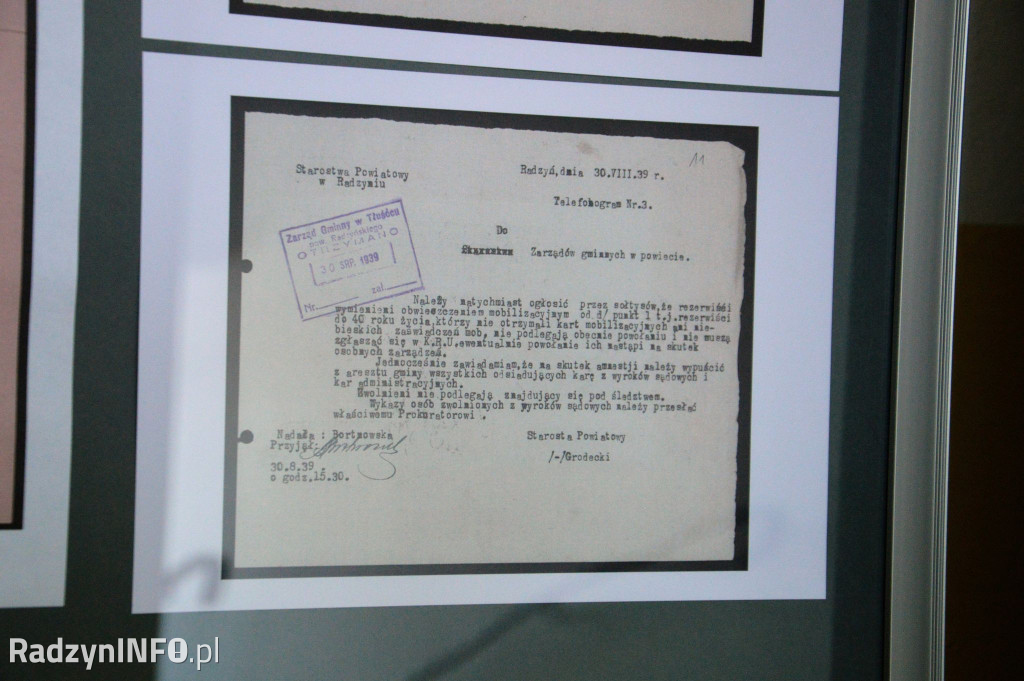 11
Starostwa Powiatowy
w Radzyniu
Radzyń,dnia 30.VIII.39 r.
Telefonogram Nr.3.
Do
Zarządów gminnych w powiecie.
Zarząd Gminny w Tłuśćcu
pow. Radzyńskiego
OTRZYMANO
30 SRP. 1939
Nr. zał.
Należy natychmiast ogłosić przez sołtysów,że rezerwiści
wymienieni obwieszczeniem mobilizacyjnym od d/ punkt 1 t.j.rezerwiści
do 40 roku życia,którzy nie otrzymali kart mobilizacyjnych ani nie-
bieskich zaświadczeń mob, nie podlegają obecnie powołaniu i nie muszą
zgłaszać się w K.R.U.ewentualnie powołanie ich nastąpi na skutek
osobnych zarządzeń.
Jednocześnie zawiadamiam,że na skutek amnestji należy wypuścić
z aresztu gminy wszystkich odsiadujących karę z wyroków sądowych i
kar administracyjnych.
Zwolnieni nie podlegają znajdujący się pod śledztwem.
Wykazy osób zwolnionych z wyroków sądowych należy przesłać
właściwemu Prokuratorowi .
Nadała : Bortnowska
Przyjął:
30.8.39 .
o godz.15.30.
Starosta Powiatowy
/-/Grodecki
RadzynINFO.pl